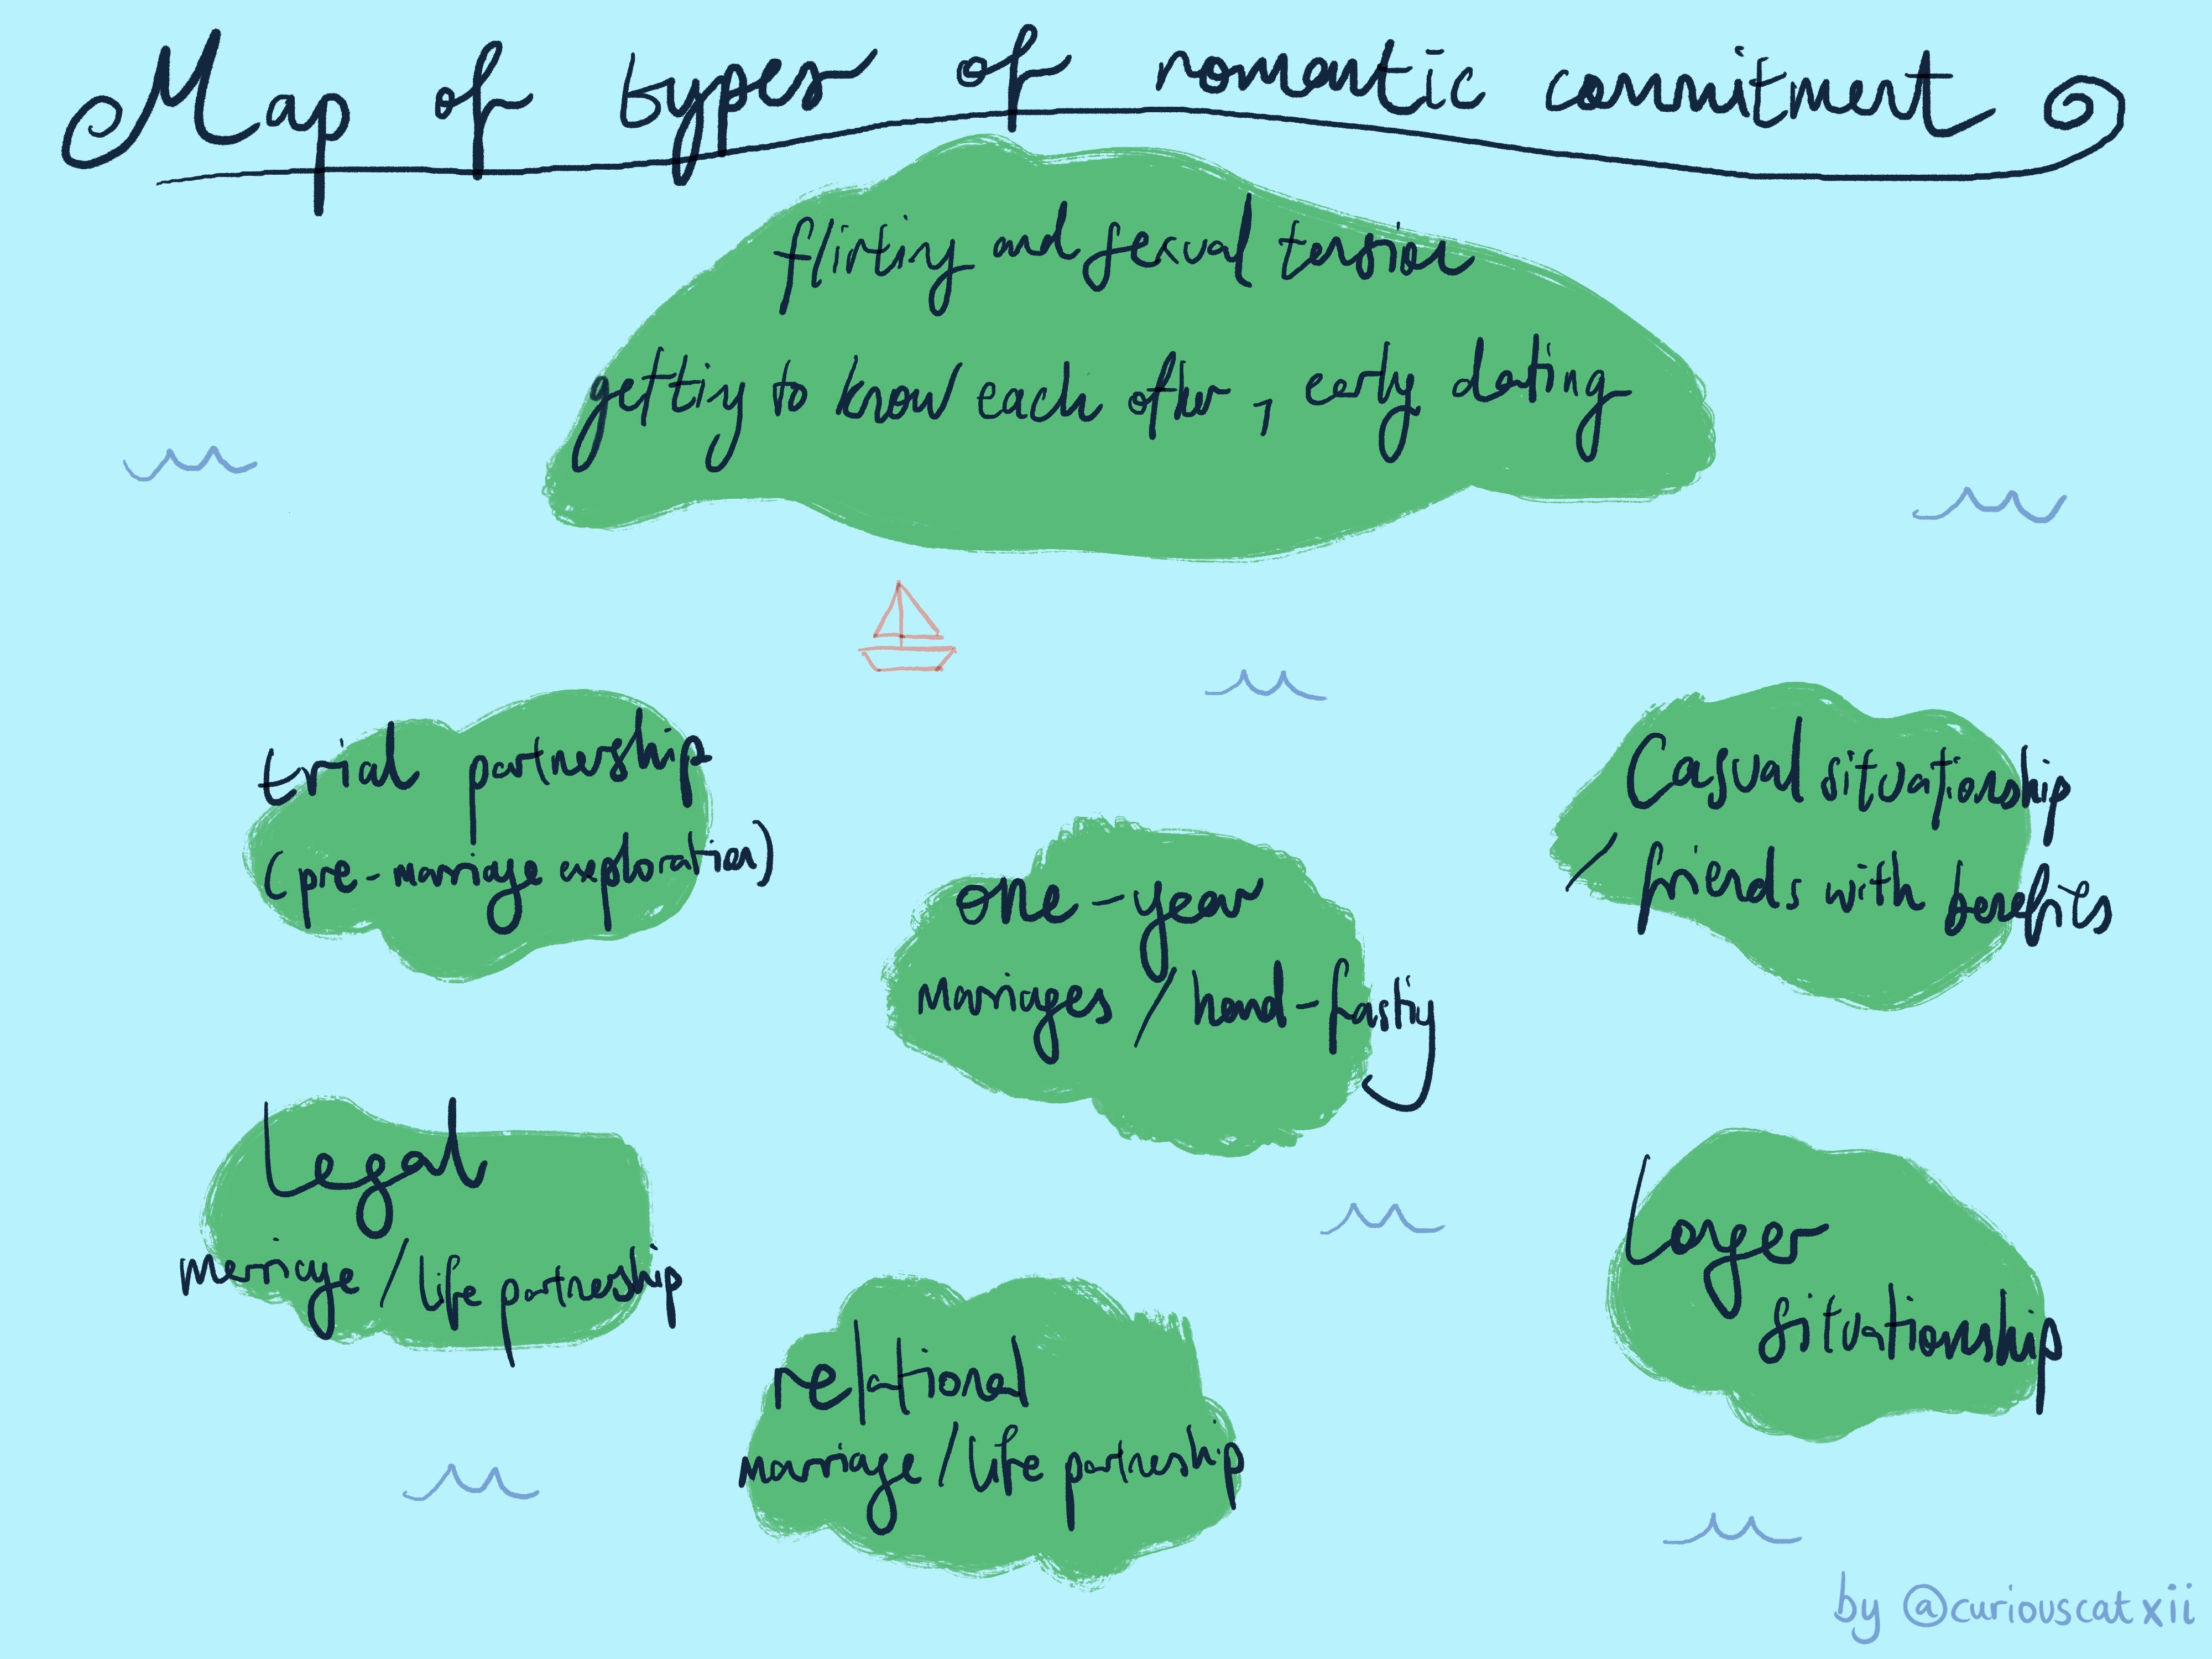 Map of types of romantic commitment
flirting and sexual tension
getting to know each other, early dating
trial partnership
(pre-marriage exploration)
Casual situationship
/ friends with benefits
one-year
marriages / hand-fasting
Legal
marriage / life partnership
Longer
situationship
relational
marriage / life partnership
by @curiouscatxii